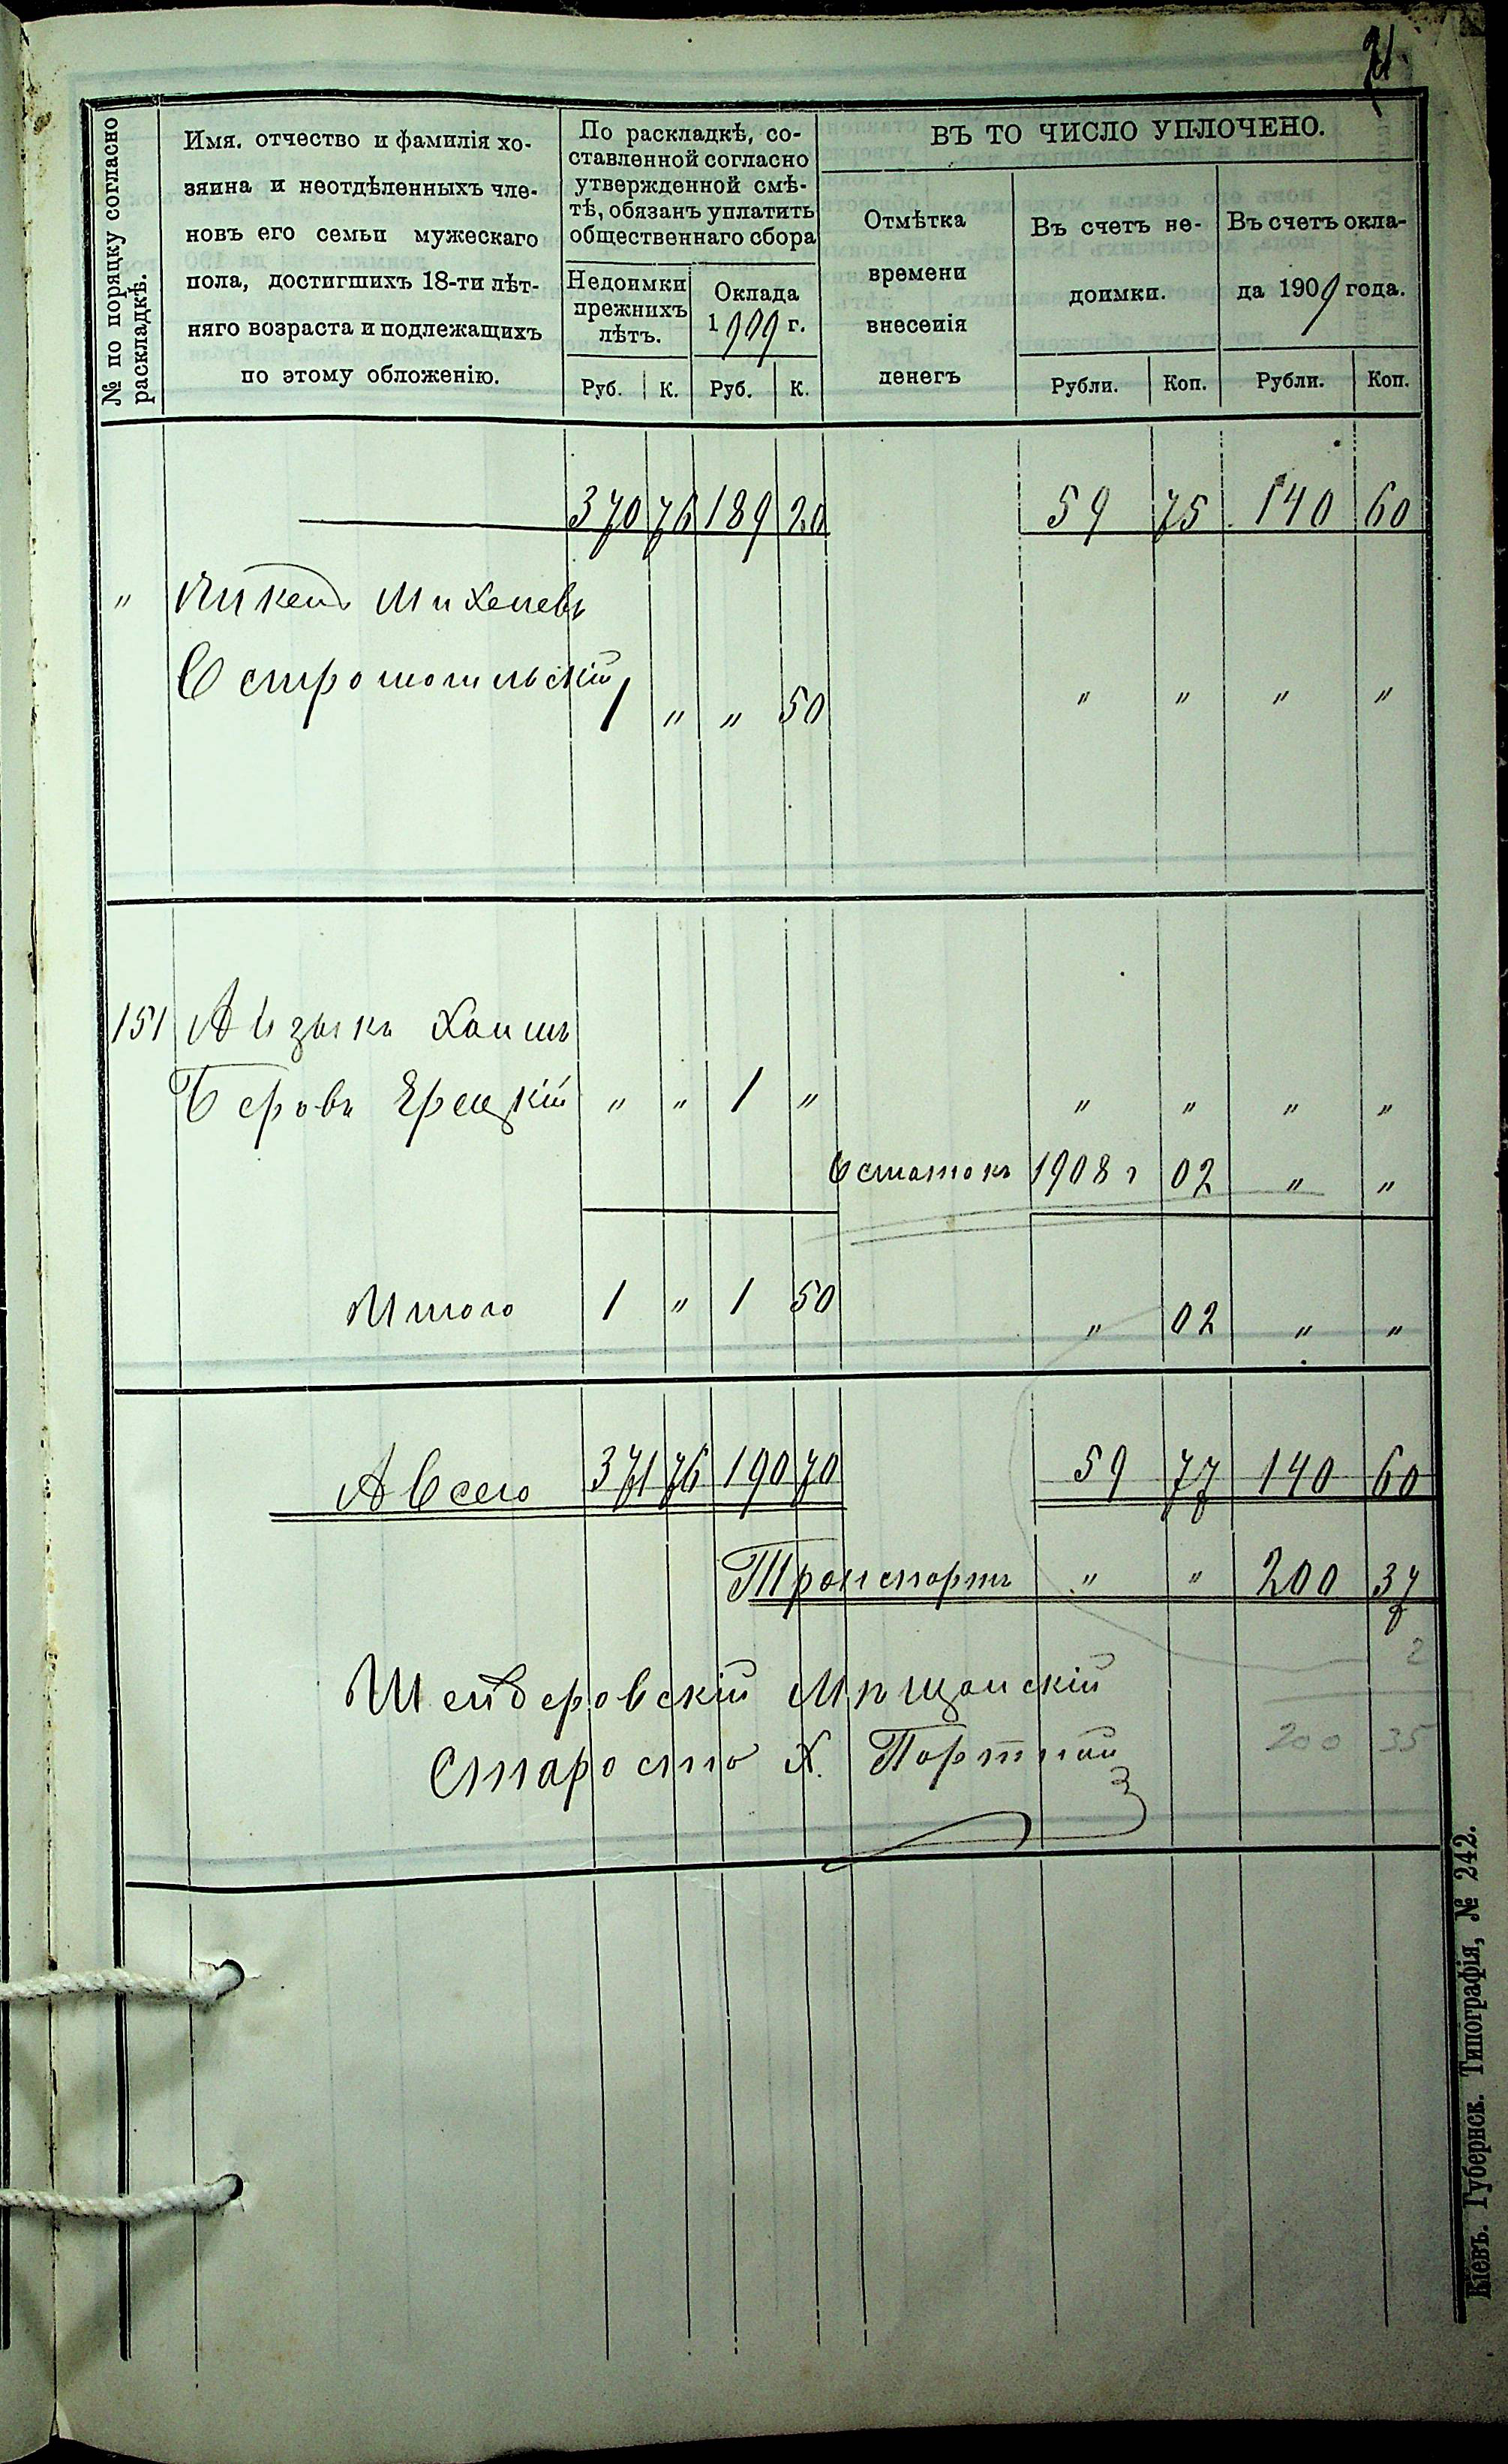 71
№ по поряцку согласно раскладкѣ.
Имя. отчество и фамилія хо-
зяина и неотдѣленныхъ чле-
новъ его семьи мужескаго
пола, достигшихъ 18-ти лѣт-
няго возраста и подлежащихъ
по этому обложенію.
По раскладкѣ, со-
ставленной согласно
утвержденной смѣ-
тѣ, обязанъ уплатить
общественнаго сбора
Недоимки
прежнихъ
лѣтъ.
Оклада
1909 г.
ВЪ ТО ЧИСЛО УПЛОЧЕНО.
Отмѣтка
времени
внесенія
денегъ
Въ счетъ не-
доимки.
Въ счетъ окла-
да 1909 года.
Руб. К. Руб. К. Рубли. Коп. Рубли. Коп.
370 76 189 20 59 75 140 60
" Михелевъ
Остромогильскій 1 " " 50 " " " "
151 Айзыкъ Хаимъ
Беровъ Ерецкій " " 1 " " " " "
Остатокъ 1908 г 02 " "
Итого 1 " 1 50 " 02 " "
А всего 371 76 190 70 59 77 140 60
Транспортъ " " 200 37
2
Шендеровскій Мѣщанскій
Староста Х. Портной 200 35
Кіевъ. Губернск. Типографія, № 242.